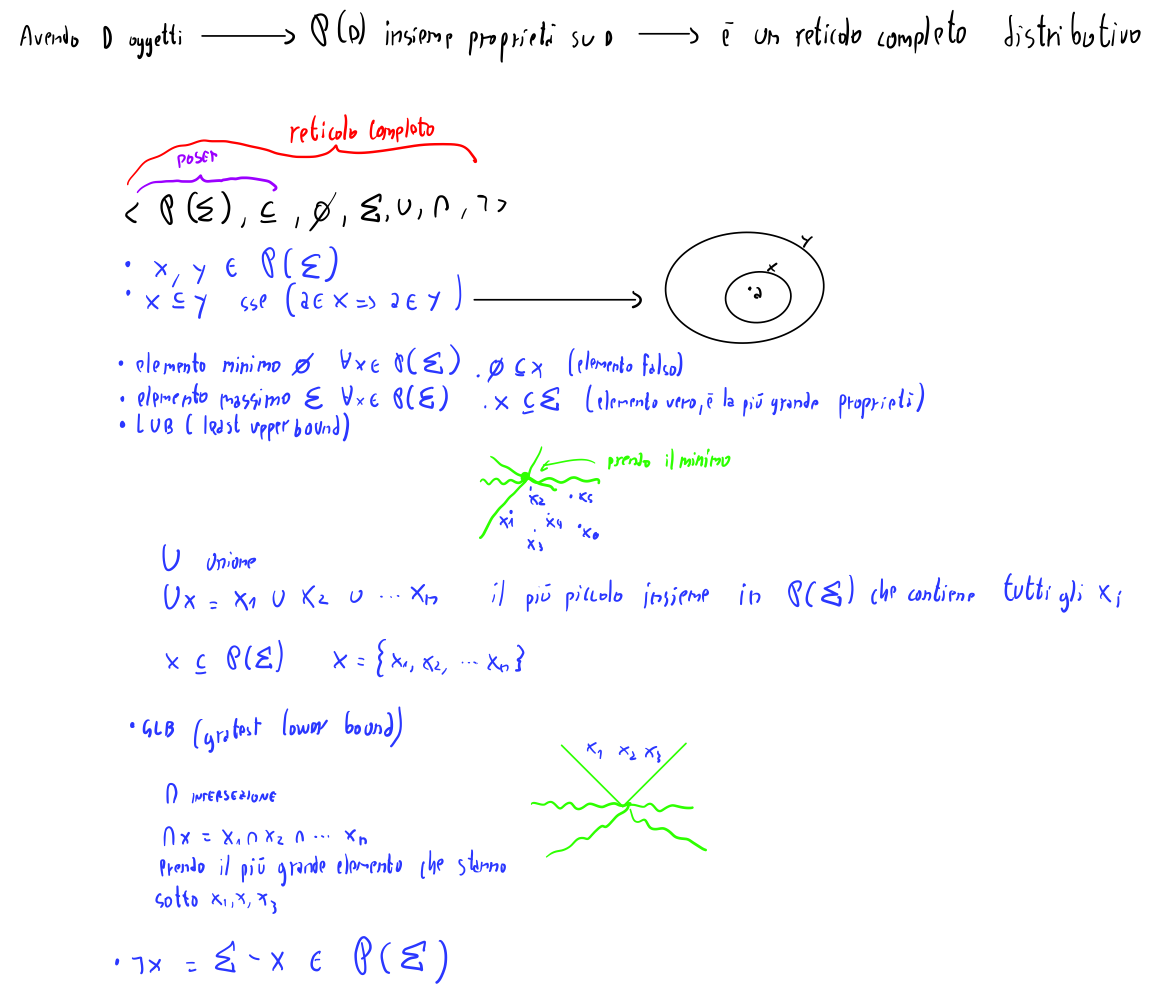 Avendo D oggetti ⟶ ℘(D) insieme proprietà su D ⟶ è un reticolo completo distributivo
reticolo completo
POSET
< ℘(Σ), ⊆, ∅, Σ, ∪, ∩, ¬ >
• x, y ∈ ℘(Σ)
• x ⊆ y sse (a ∈ x => a ∈ y) ⟶
y
x
• a
• elemento minimo ∅ ∀x ∈ ℘(Σ) . ∅ ⊆ x (elemento falso)
• elemento massimo Σ ∀x ∈ ℘(Σ) . x ⊆ Σ (elemento vero, è la più grande proprietà)
• LUB (least upper bound)
prendo il minimo
x2 x5
x1 x4 x6
x3
∪ unione
∪x = x1 ∪ x2 ∪ ... xn il più piccolo insieme in ℘(Σ) che contiene tutti gli xi
x ⊆ ℘(Σ) x = {x1, x2, ... xn}
• GLB (gratest lower bound)
x1 x2 x3
∩ INTERSEZIONE
∩x = x1 ∩ x2 ∩ ... xn
Prendo il più grande elemento che stanno
sotto x1, x, x3
• ¬x = Σ - x ∈ ℘(Σ)